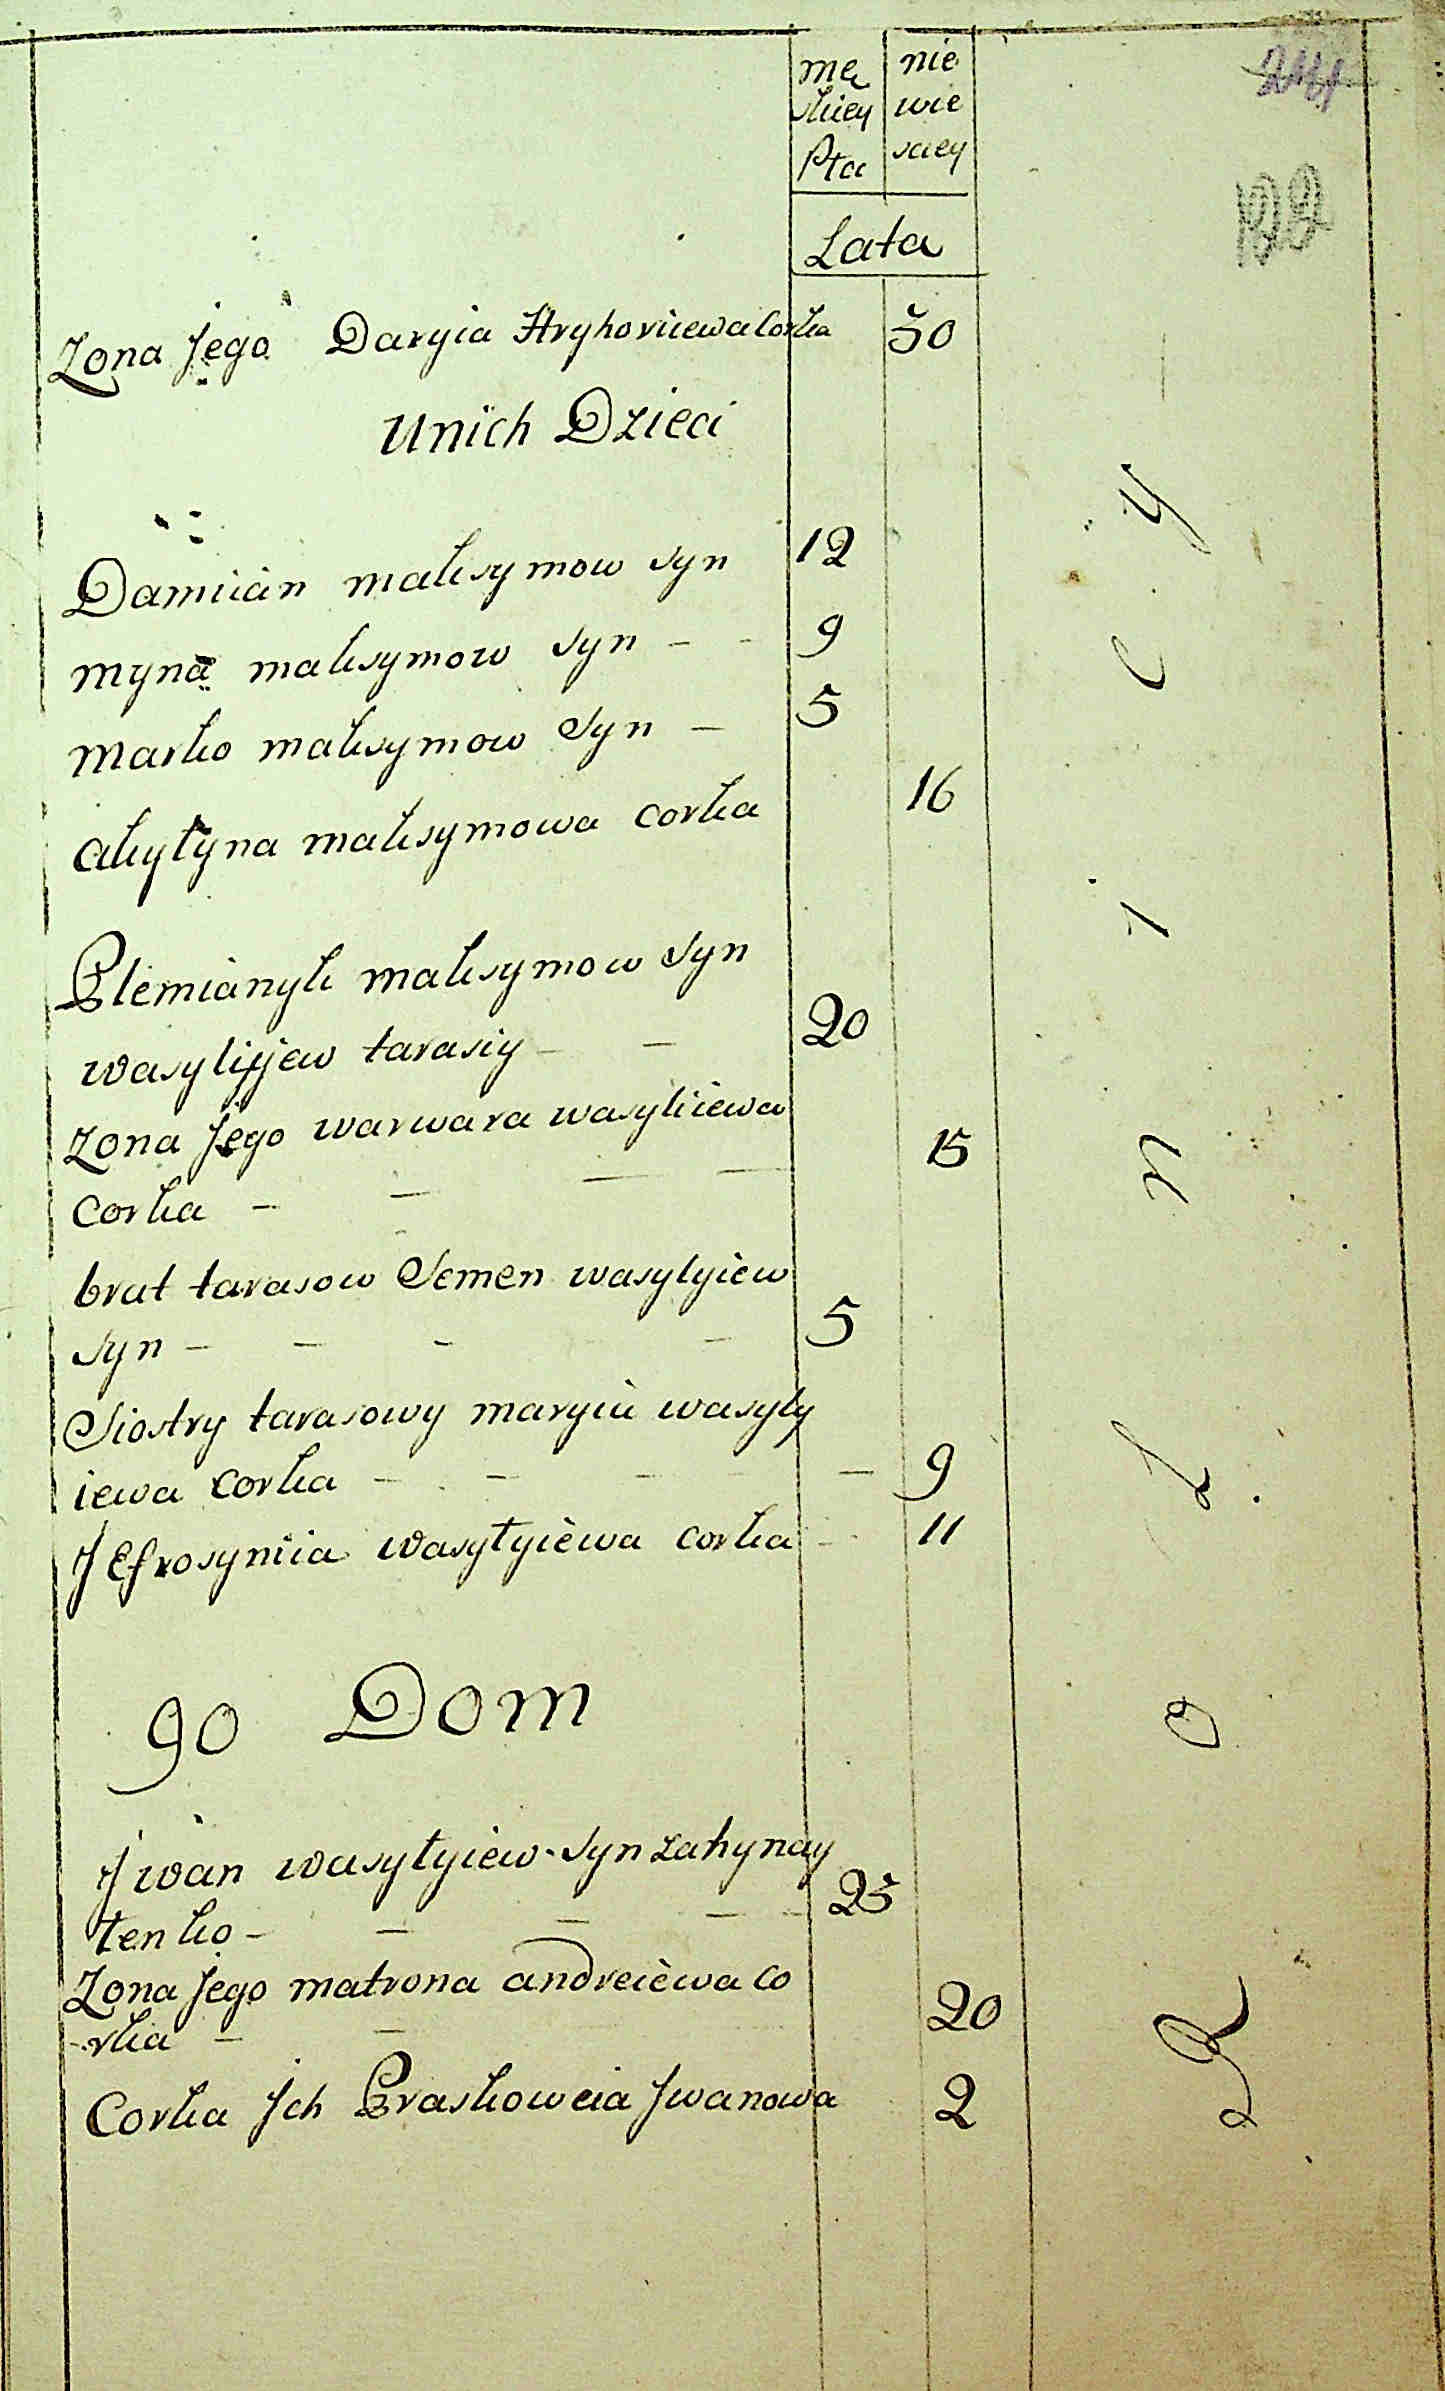 mę nie
skiey wie
Płci sciey
Lata
Zona Jego Daryia Hryhoriiewa Corka 30
Unich Dzieci
Damiian maksymow syn 12
myna maksymow syn - - 9
marko maksymow Syn - 5
akyłyna maksymowa corka 16
Plemianyk maksymow Syn
wasyliyjew tarasiy - - 20
Zona Jego warwara wasyliiewa
corka - - - - 15
brat tarasow Semen wasylyiew
syn - - - - 5
Siostry tarasowy maryia wasyly
iewa corka - - - - - 9
JEfrosyniia wasyłyiewa corka - 11
90 Dom
Jwan wasyłyiew syn zahynay
łenko - - - - 25
Zona Jego matrona andreiewa co
rka - - 20
Corka Jch Praskoweia Jwanowa 2
R o l n i c y